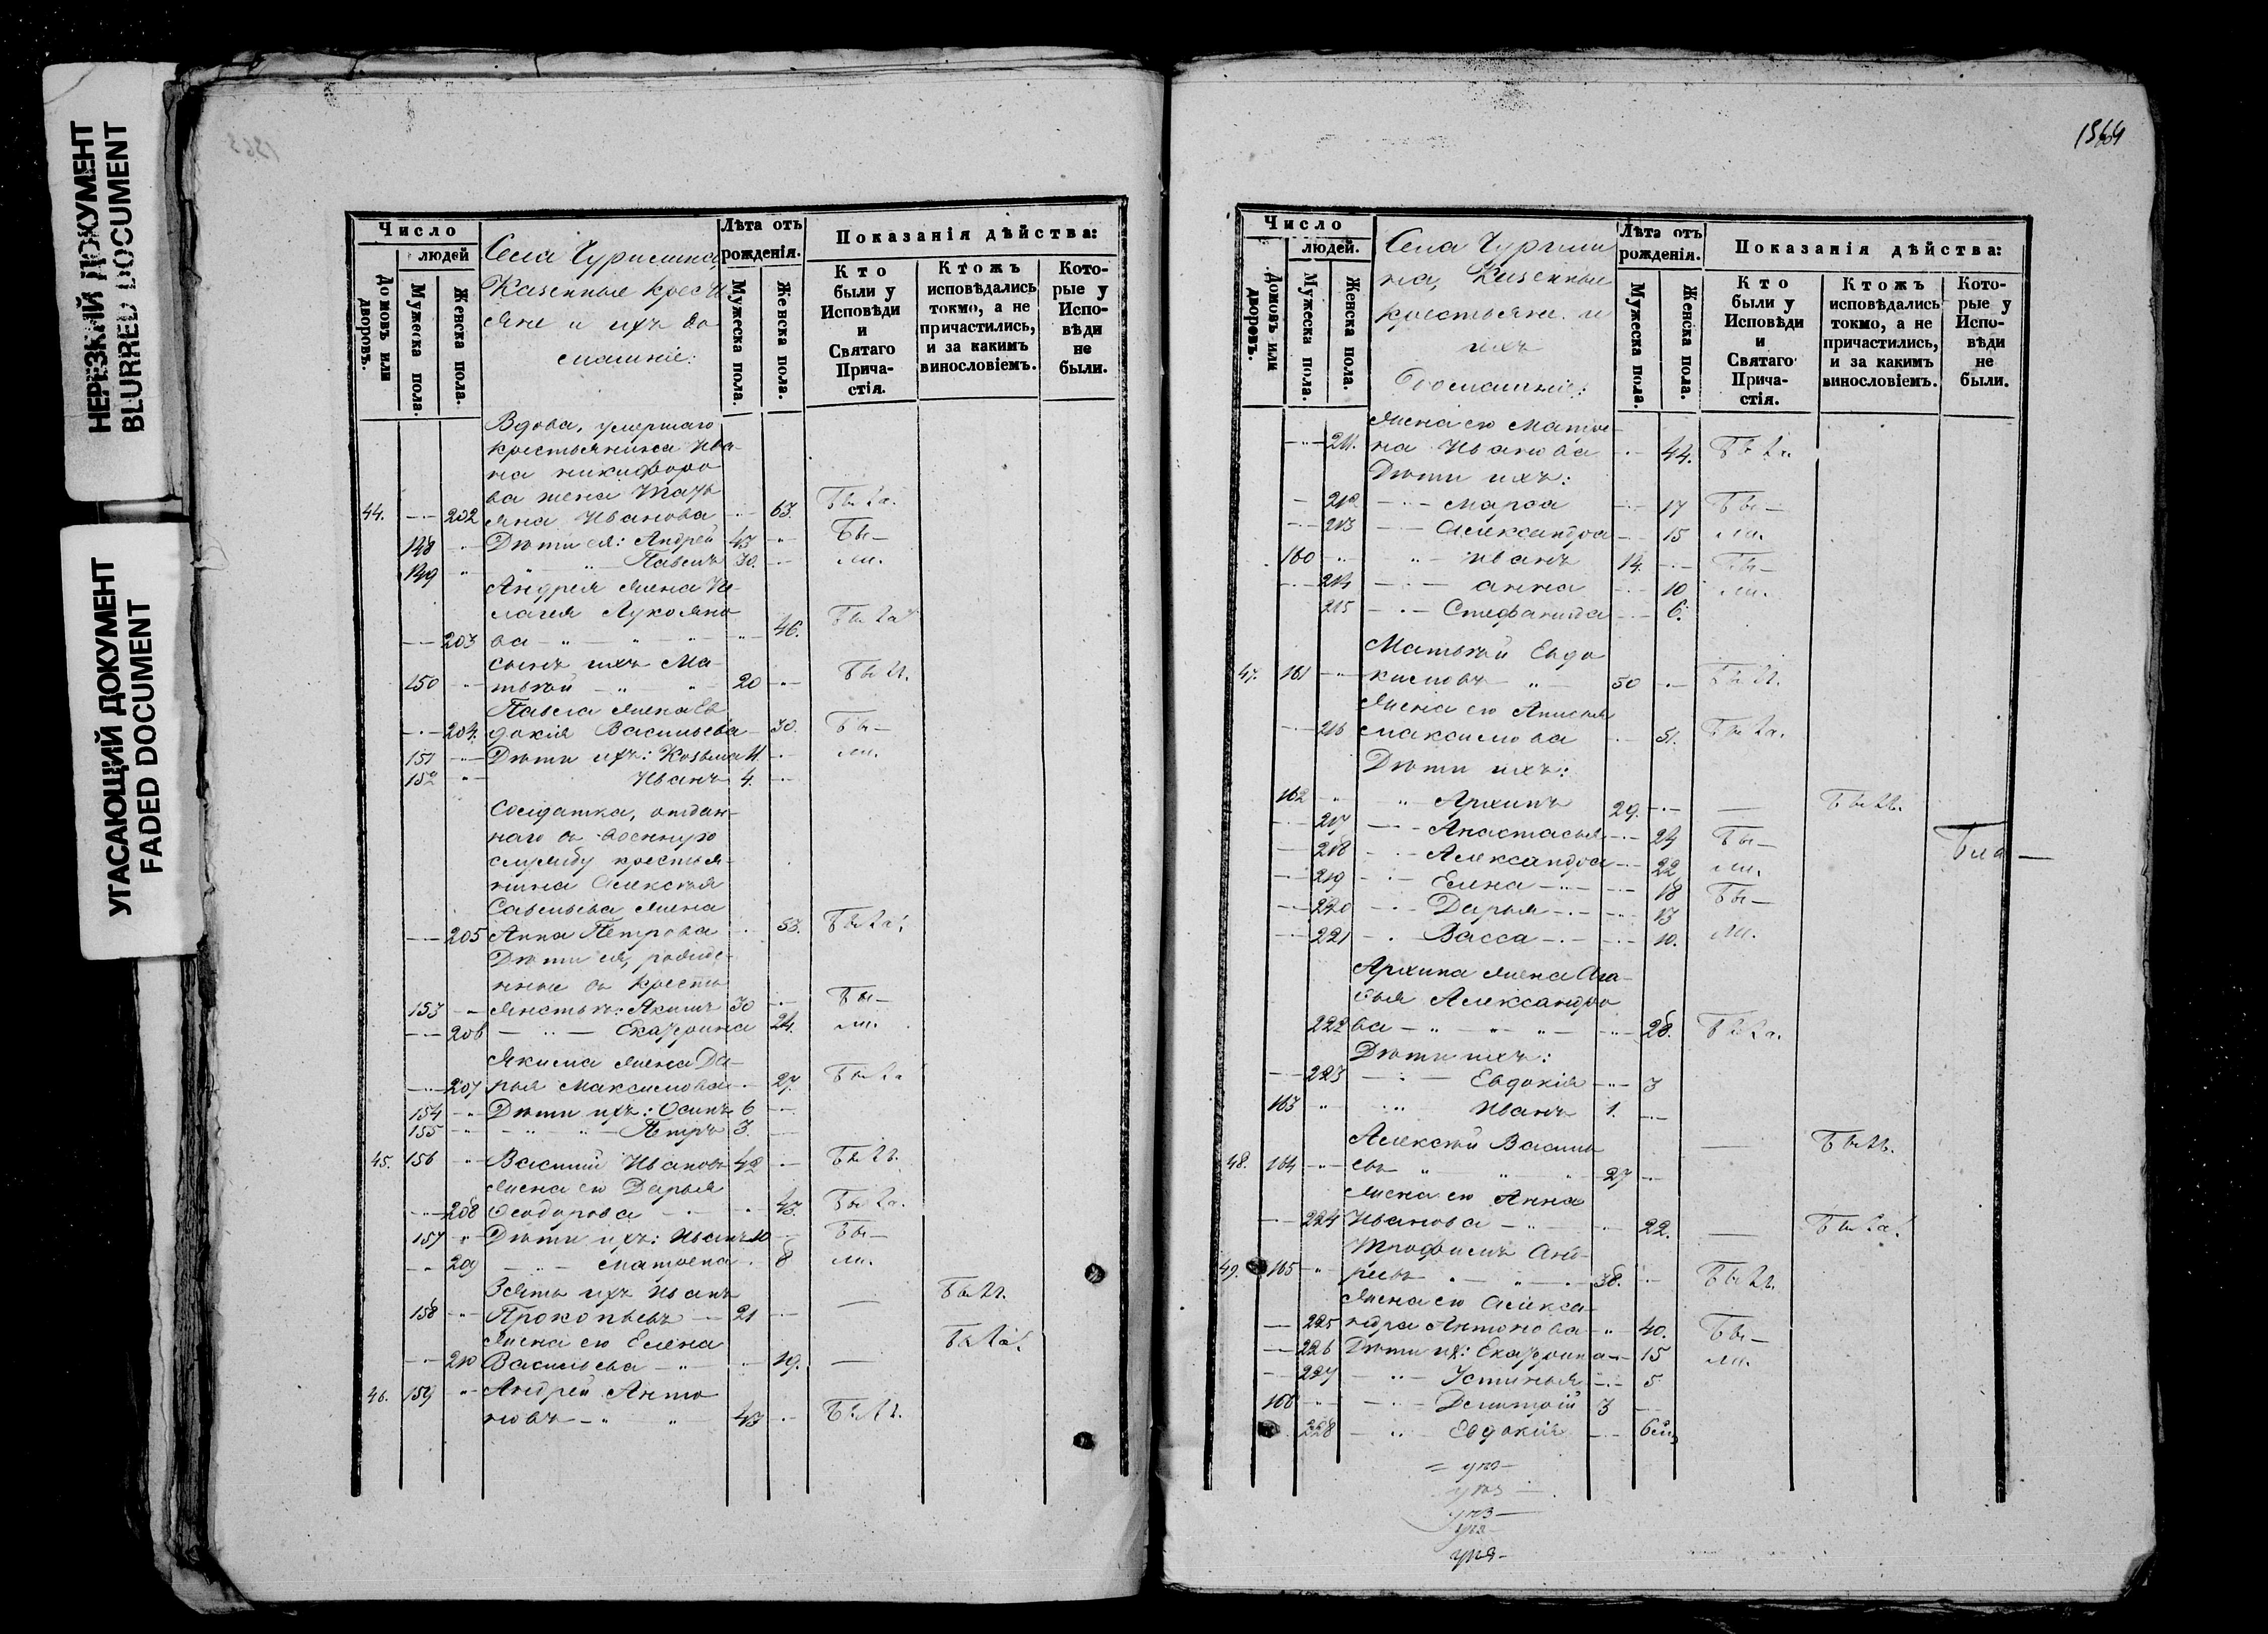 НЕРЕЗКИЙ ДОКУМЕНТ
BLURRED DOCUMENT
УГАСАЮЩИЙ ДОКУМЕНТ
FADED DOCUMENT
Число
людей
Домовъ или дворовъ.
Мужеска пола.
Женска пола.
Села Чуришина,
Казенные крестья
яне и ихъ до
машніе:
Лѣта отъ рожденія.
Мужеска пола.
Женска пола.
Показанія дѣйства:
Кто были у Исповѣди и Святаго Причастія.
Ктожъ исповѣдались токмо, а не причастились, и за какимъ винословіемъ.
Которые у Исповѣди не были.
Вдова, умершаго
крестьянина Ива-
на Никифоро
ва жена Татья
44. 202 яна Иванова 63. Была.
148 Дѣти ея: Андрей 43 Бы-
149 Павелъ 30. ли.
Андрея жена Пе-
лагея Лукояно
203 ва 46. Была
сынъ ихъ Ма-
150 твѣй 20 Былъ.
Павла жена Ев
204. докія Васильева 30. Бы-
151 Дѣти ихъ: Козьма 11. ли.
152 Иванъ 4.
Солдатка, отдан-
наго въ военную
службу крестья-
нина Алексѣя
Савельева жена
205 Анна Петрова 53. Была.
Дѣти ея, рожде-
нные въ кресть
153 янствѣ: Якимъ 30 Бы-
206 Екатерина 24. ли.
Якима жена Да-
207 рья Максимова 27. Была
154 Дѣти ихъ: Осипъ 6
155 Петръ 3.
45. 156 Василій Ивановъ 42 Былъ.
Жена его Дарья
208 Ѳеодорова 43. Была.
157 Дѣти ихъ: Иванъ 10 Бы-
209 Матрена 8 ли.
Зять ихъ Иванъ
158 Прокопьевъ 21 Былъ.
Жена его Елена
210 Васильева 19. Была.
46. 159 Андрей Анто
новъ 43 Былъ.
1364
Число
людей.
Домовъ или дворовъ.
Мужеска пола.
Женска пола.
Села Чуриши
на, Казенные
крестьяне и
ихъ
Домашніе:
Лѣта отъ рожденія.
Мужеска пола.
Женска пола.
Показанія дѣйства:
Кто были у Исповѣди и Святаго Причастія.
Ктожъ исповѣдались токмо, а не причастились, и за какимъ винословіемъ.
Которые у Исповѣди не были.
Жена его Матре-
211. на Иванова 44. Была.
Дѣти ихъ:
212 Марѳа 17 Бы-
213 Александра 15 ли.
160 Иванъ 14. Бы-
214 Анна 10 ли.
215 Стефанида 6.
Матвѣй Евдо
47. 161 кимовъ 50 Былъ.
Жена его Анисья
216 Максимова 51. Была.
Дѣти ихъ:
162 Архипъ 29. Былъ.
217 Анастасья 24 Бы-
218 Александра 22 ли.
219 Елена 18 Бы-
220 Дарья 13
221 Васса 10. ли.
Архипа жена Ага-
ѳья Александро
222 ва 28. Была.
Дѣти ихъ:
223 Евдокія 3
163 Иванъ 1.
Алексѣй Василь
48. 164 евъ 27 Былъ.
Жена его Анна
224 Иванова 22. Была.
Трофимъ Анд-
49. 165 реевъ 38. Былъ.
Жена его Алекса-
225 ндра Антонова 40. Бы-
226 Дѣти их: Екатерина 15 ли.
227 Устинья 5
166 Димитрій 3
228 Евдокія